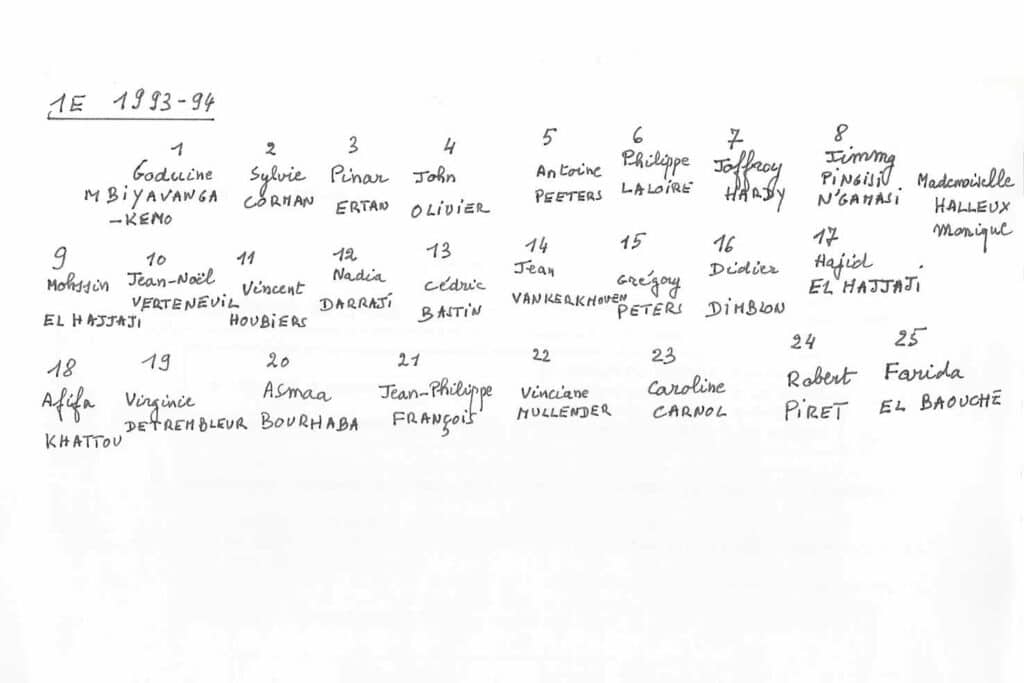 1E 1993-94
1 2 3 4 5 6 7 8
Goduine Sylvie Pinar John Antoine Philippe Joffroy Jimmy
MBIYAVANGA CORMAN ERTAN OLIVIER PEETERS LALOIRE HARDY PINGISI Mademoiselle
-KEMO N'GAMASI HALLEUX
Monique
9 10 11 12 13 14 15 16 17
Mohssin Jean-Noël Vincent Nadia Cédric Jean Grégoy Didier Hajid
EL HAJJAJI VERTENEUIL HOUBIERS DARRAJI BASTIN VANKERKHOVEN PETERS DIMBLON EL HAJJAJI
18 19 20 21 22 23 24 25
Afifa Virginie Asmaa Jean-Philippe Vinciane Caroline Robert Farida
KHATTOU DETREMBLEUR BOURHABA FRANÇOIS MULLENDER CARNOL PIRET EL BAOUCHE